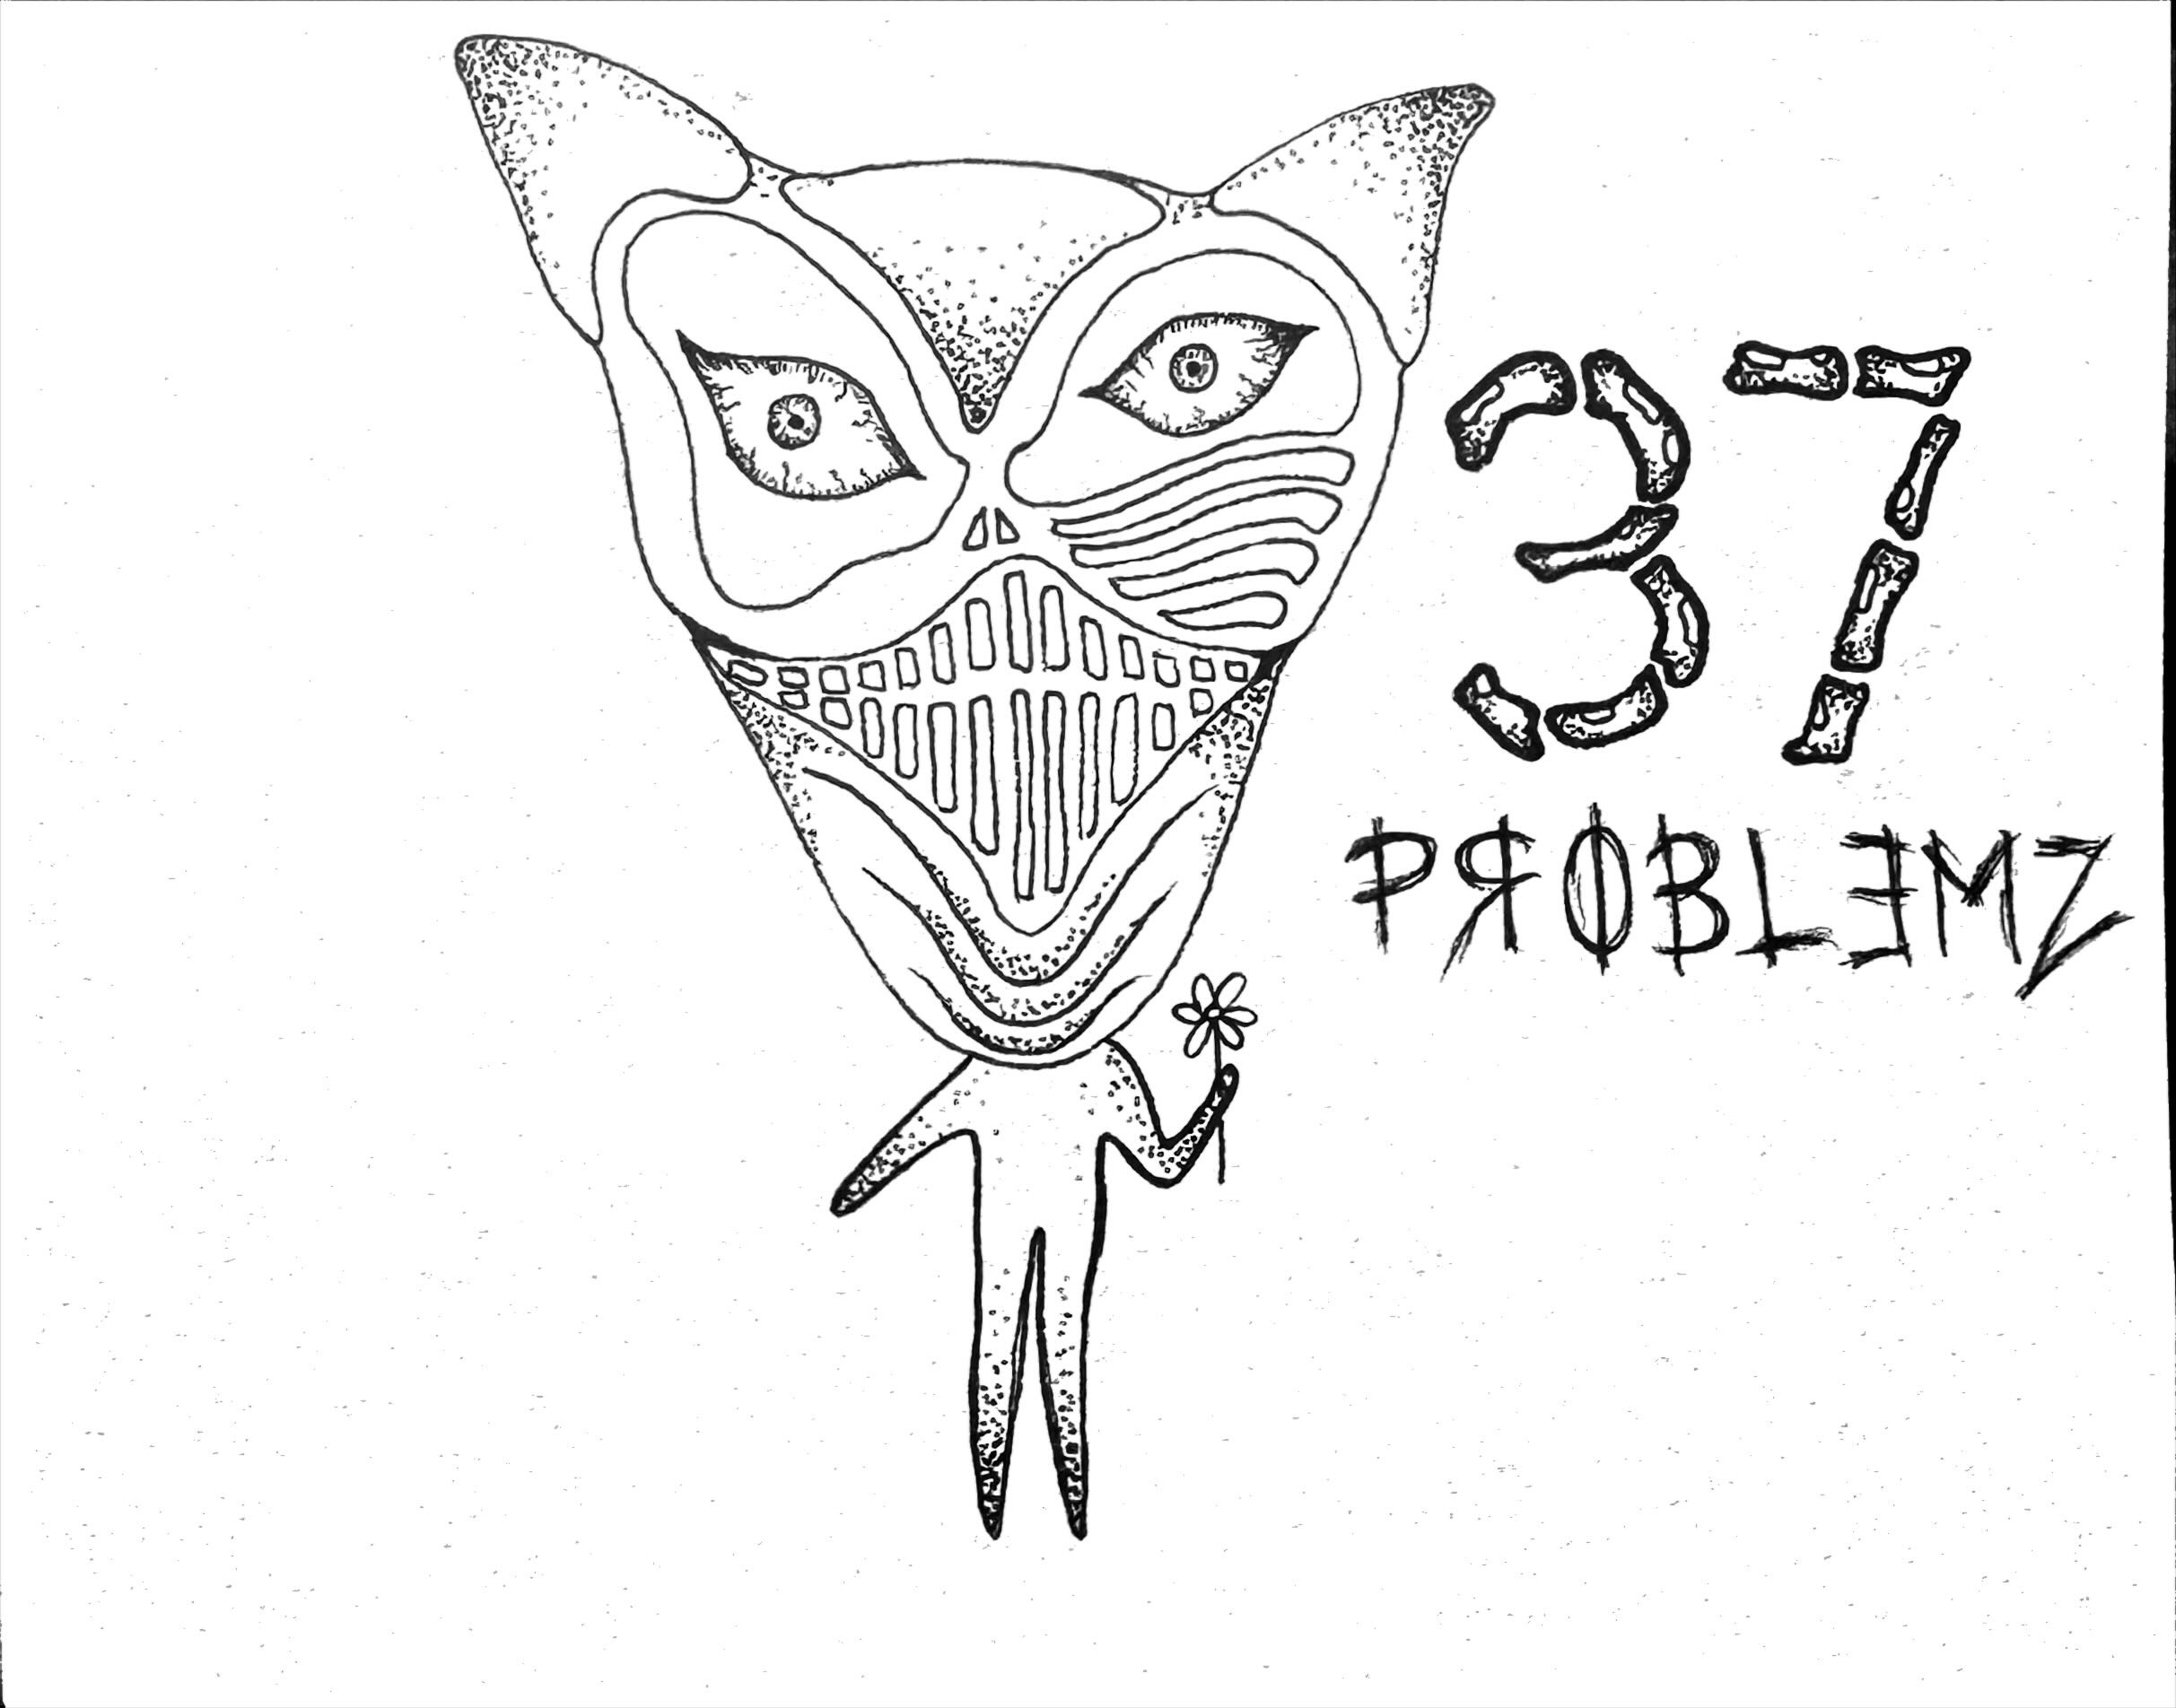 37
PЯOBLƎMZ